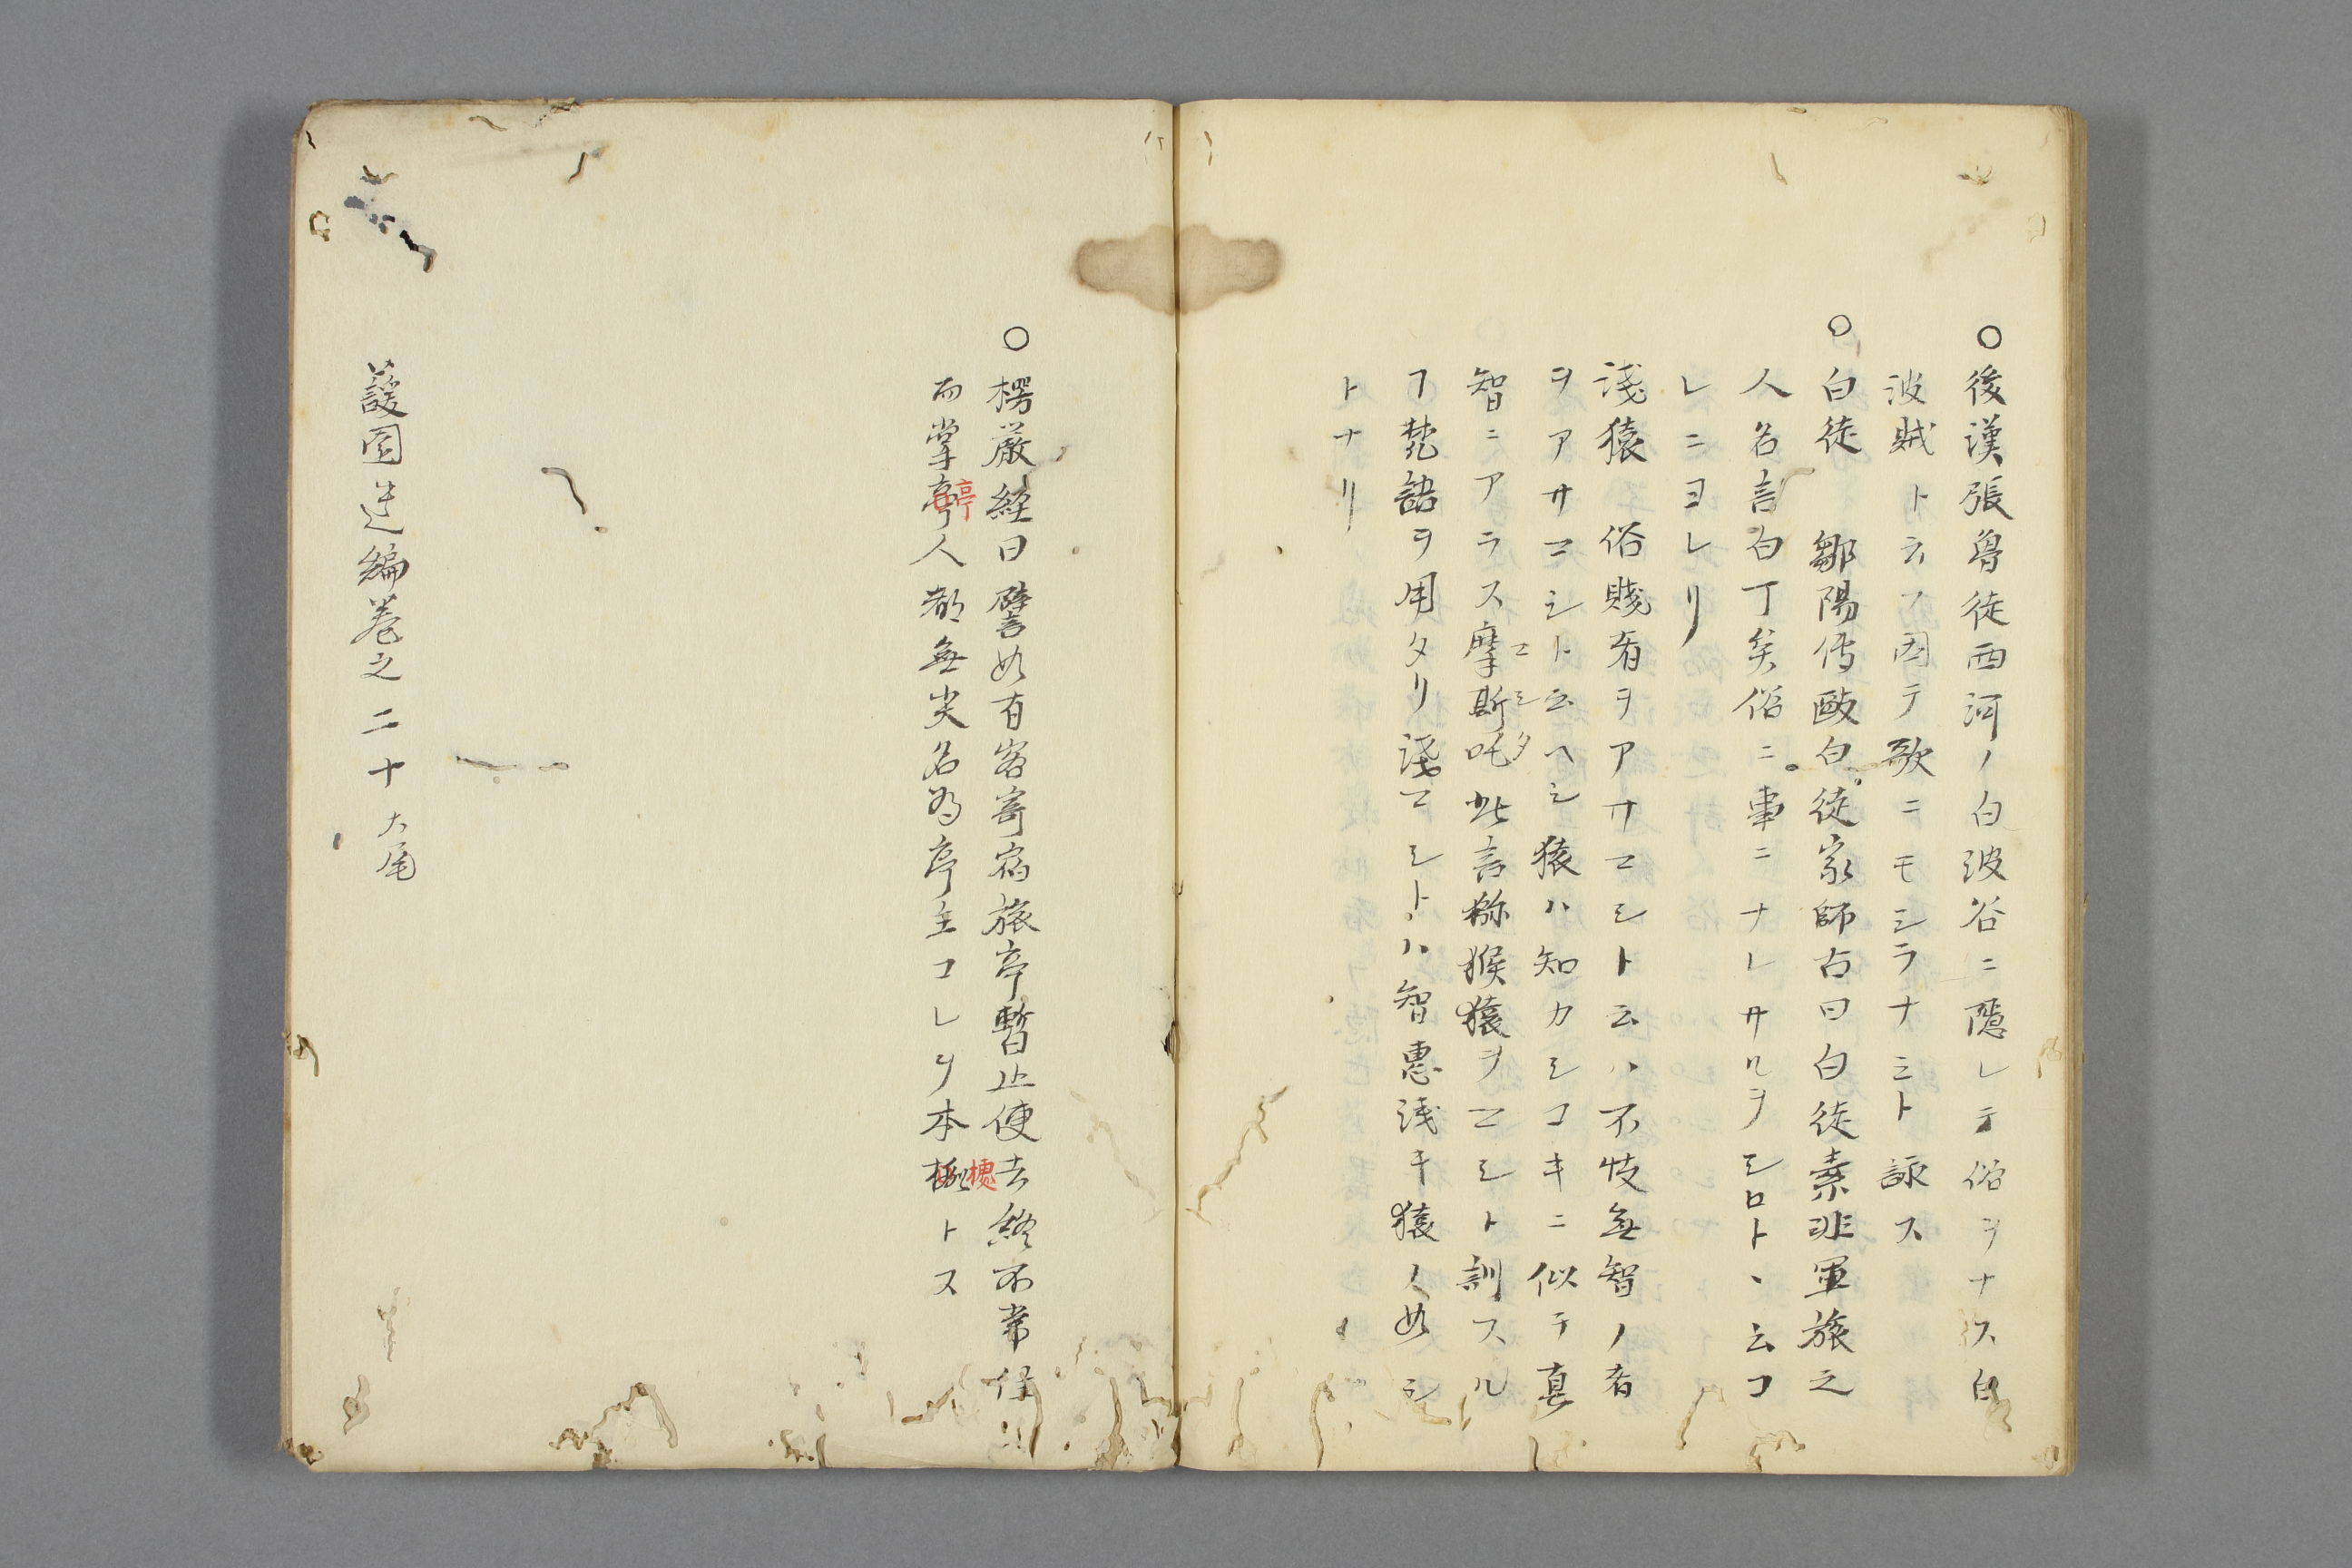 ○後漢張魯徒西河ノ白波谷ニ隱レテ俗ヲナス白
波賊ト云フ因テ歌ニモシラナミト詠ス
○白徒　鄒陽傳敺白徒家師古曰白徒素非軍旅之
人名言白丁矣俗ニ事ニナレサルヲシロトヽ云コ
レニヨレリ
淺猿　俗賤者ヲアサマシト云ハ不忮無智ノ者
ヲアサマシト云ヘシ猿ハ知カシコキニ似テ真
智ニアラス摩斯吒此言獼猴猿ヲマシト訓スル
マシタ
フ梵語ヲ用タリ淺マシトハ智惠淺キ猿ノ如シ
トナリ
○楞嚴経曰譬如有客寄宿旅亭暫止便去終不常住
而掌亭人都無
亭
名為亭主コレヲ本
トス
蘐園
編卷之二十大尾